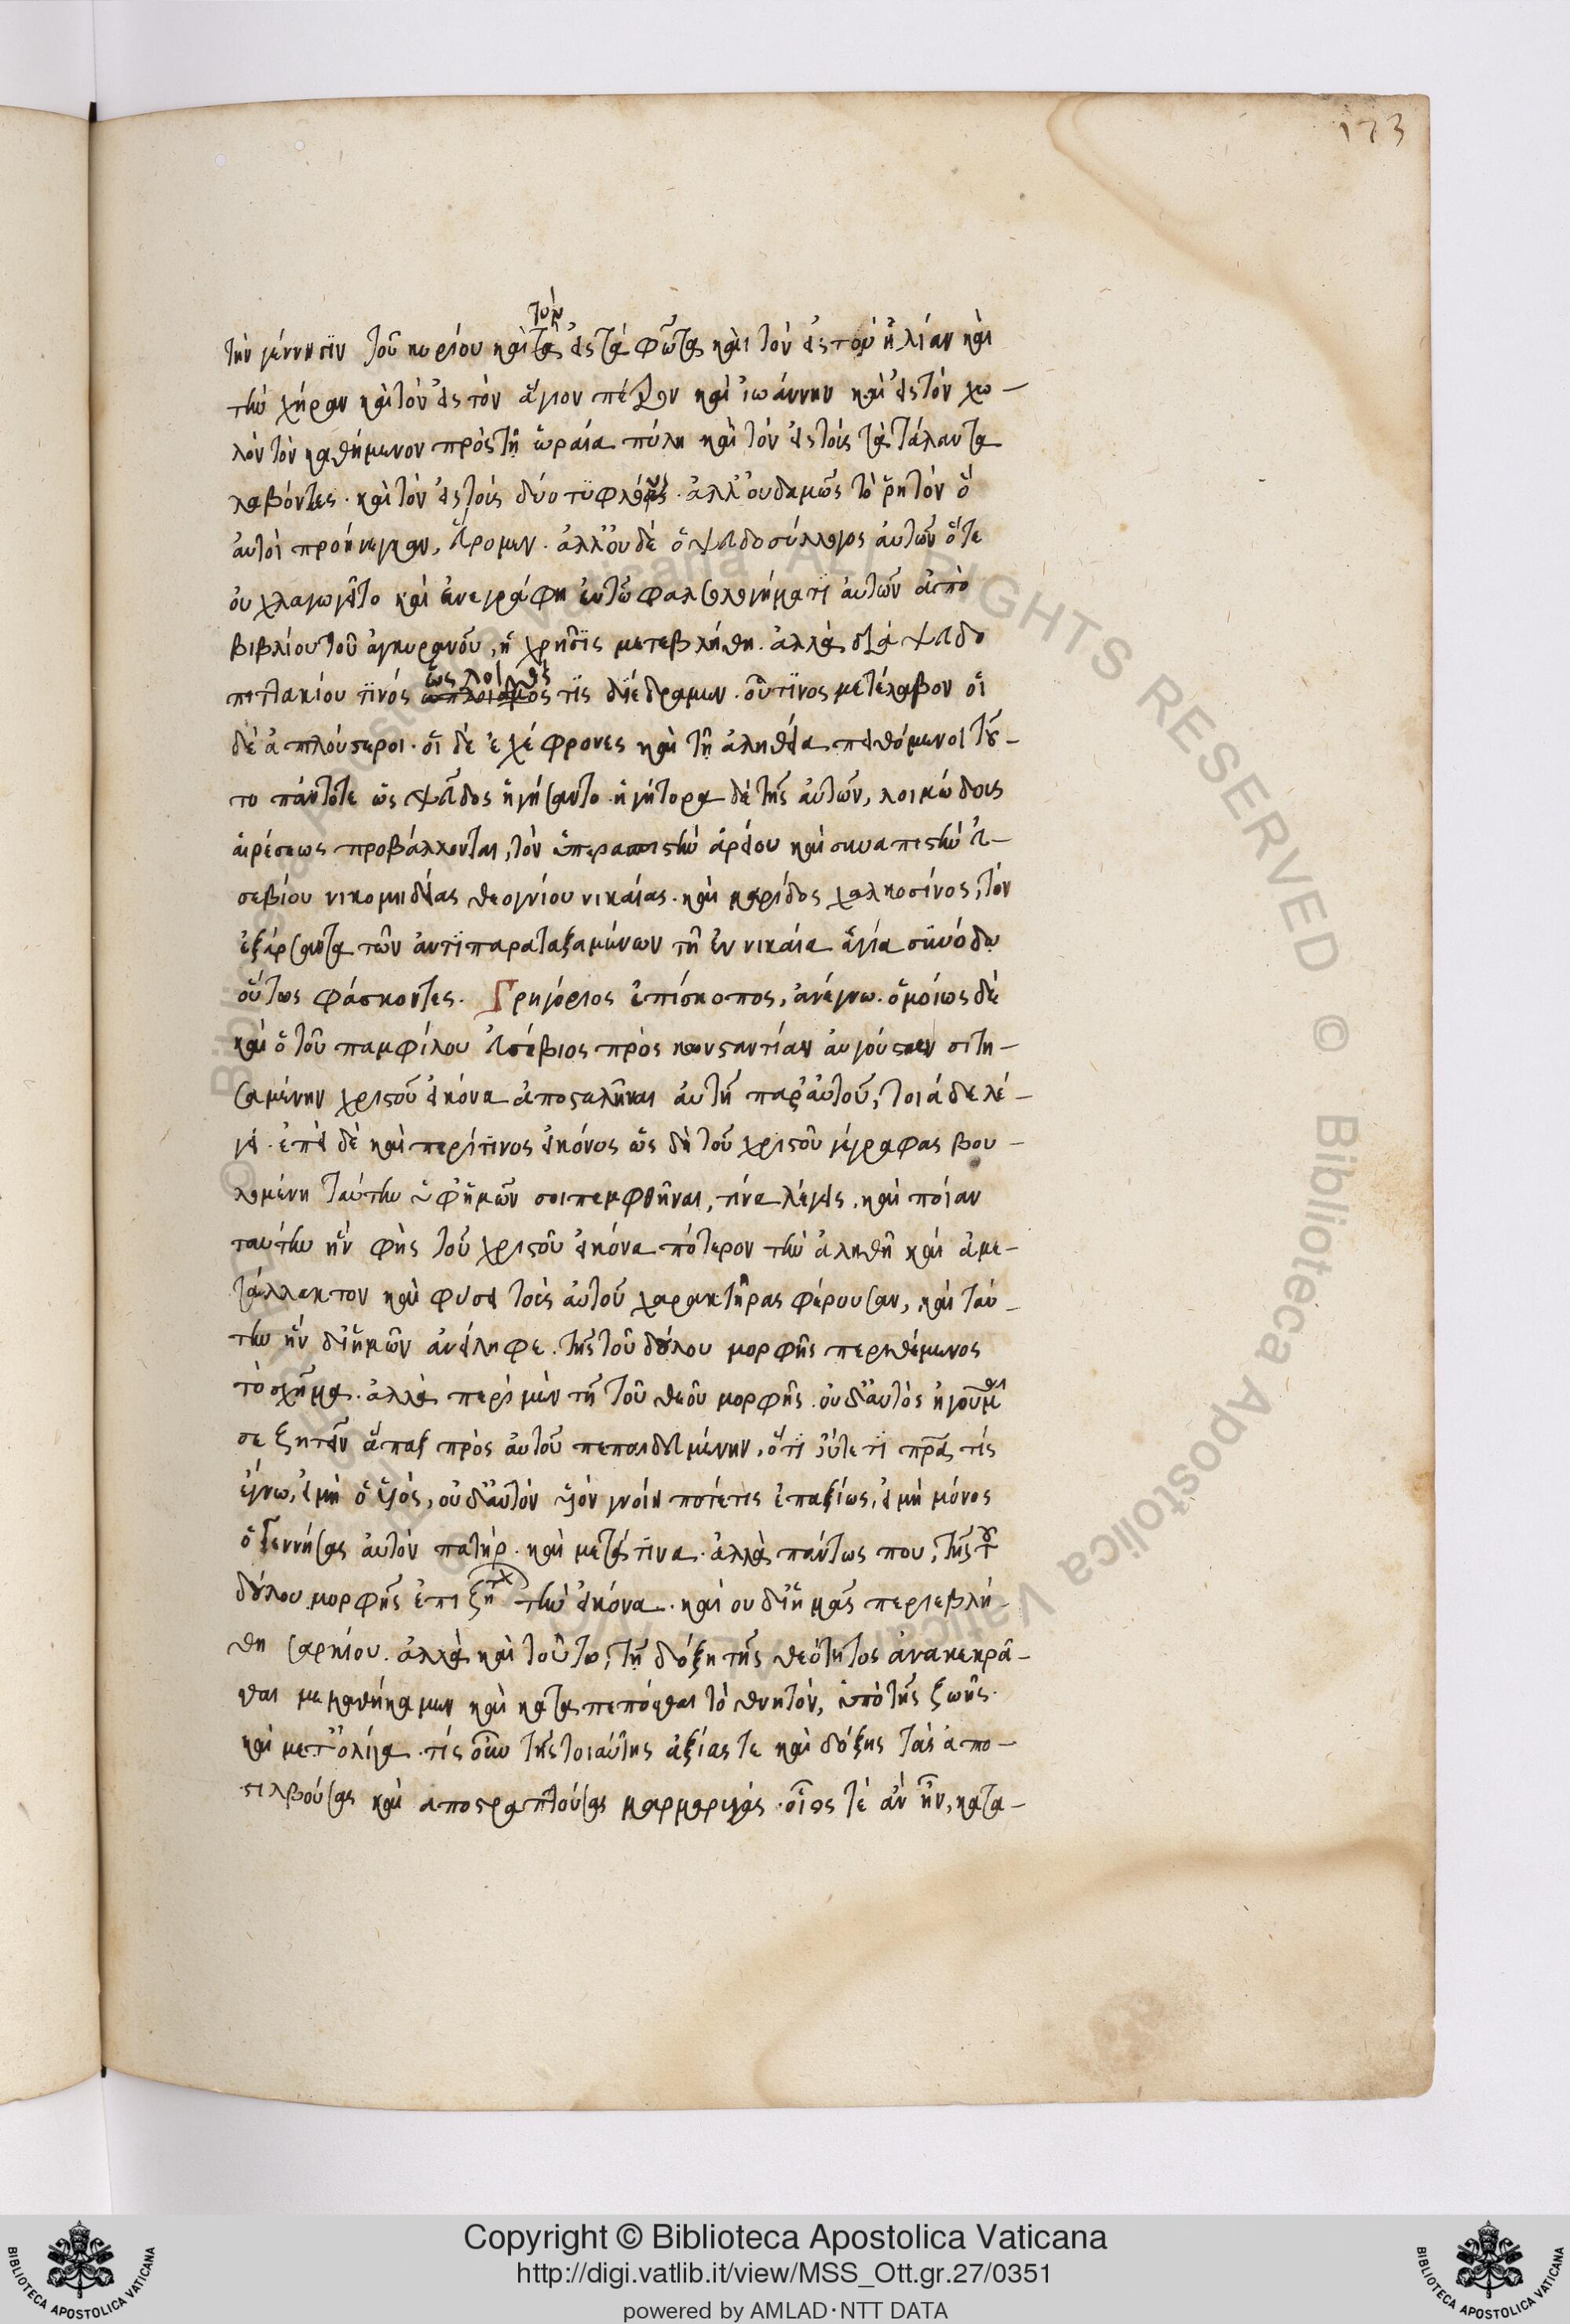 173
τὸν
τὴν γέννησϊν τοῦ κυρίου καὶ τὰ εἰς τὰ φῶτα καὶ τὸν εἰς τὸν ἡλίαν καὶ
τὴν χήραν καὶ τὸν εἰς τὸν ἅγιον πέτρον καὶ ἰωάννην καὶ εἰς τὸν χω–
λὸν τὸν καθήμενον πρὸς τῆ ὡραία πύλη καὶ τὸν εἰς τοὺς τὰ τάλαντα
λαβόντες. καὶ τὸν εἰς τοὺς δύο τϋφλοὺς. ἀλλ' ουδαμῶς τὸ ῥητὸν ὃ
αὐτοὶ προήνεγκαν, εὕρομεν. ἀλλ' ουδὲ ὁ ψευδοσύλλογος αὐτῶν ὅτε
ὀυχλαγωγεῖτο καὶ ἀνεγράφη ἐν τῶ φαλσολογήματϊ αὐτῶν ἀπὸ
βιβλίου τοῦ ἀγκυρανοῦ, ἡ χρῆσϊς μετεβλήθη. ἀλλὰ διὰ ψευδο
ὡς λοιμὸς
πιττακίου τϊνός τϊς διέδραμεν. οὗ τϊνος μετέλαβον οἱ
δὲ ἁπλούστεροι. οἱ δὲ ἐχέφρονες καὶ τῆ ἀληθεία πειθόμενοι τοῦ–
το πάντοτε ὡς ψεῦδος ἡγήσαντο. ἡγήτορα δὲ τῆς αὐτῶν, λοιμώδους
αἱρέσεως προβάλλονται, τὸν ὑπερασπιστὴν ἀρείου καὶ συναπιστὴν εὐ–
σεβίου νικομηδείας θεογνίου νικαίας. καὶ μαρίδος χαλκοσίνος, τὸν
ἐξάρξαντα τῶν ἀντϊπαραταξαμένων τῆ ἐν νικαία ἁγία σϋνόδω
οὕτως φάσκοντες. Γρηγόριος ἐπίσκοπος, ἀνέγνω. ὁμοίως δὲ
καὶ ὁ τοῦ παμφίλου εὐσέβιος πρὸς κωνσταντίαν ἀυγούσταν αἰτη–
σαμένην χριστοῦ εἰκόνα ἀποσταλῆναι αὐτῆ παρ' αὐτοῦ, τοιάδε λέ–
γει. ἐπεὶ δὲ καὶ περί τϊνος εἰκόνος ὡς δὴ τοῦ χριστοῦ γέγραφας βου–
λομένη ταύτην ὑφ' ἡμῶν σοι πεμφθῆναι, τίνα λέγεις, καὶ ποίαν
ταύτην ἣν φὴς τοῦ χριστοῦ εἰκόνα πότερον τὴν ἀληθῆ καὶ ἀμε–
τάλλακτον καὶ φύσει τοὺς αὐτοῦ χαρακτῆρας φέρουσαν, καὶ ταύ–
την ἣν δι' ἡμῶν ἀνείληφε. τῆς τοῦ δούλου μορφῆς περιθέμενος
τὸ σχῆμα. ἀλλὰ περὶ μὲν τῆς τοῦ θεοῦ μορφῆς. ουδ' αυτὸς ἡγοῦμαι
σε ζητεῖν ἅπαξ πρὸς αὐτοῦ πεπαιδευμένην, ὅτϊ οὔτε τϊ πρα τίς
ἔγνω, εἰ μὴ ὁ ὑιὸς, οὐδ' αὐτὸν ὑιὸν γνοίη ποτέ τις ἐπαξίως, εἰ μὴ μόνος
ὁ Γεννήσας αὐτὸν πατήρ. καὶ μετά τϊνα. ἀλλὰ πάντως που, τῆς τοῦ
δούλου μορφῆς ἐπιζητ τὴν εἰκόνα. καὶ ου δι' ἡμᾶς περιεβλή–
θη σαρκίου. ἀλλὰ καὶ τοῦτο, τῆ δόξη τῆς θεότητος ἀνακεκρᾶ–
σθαι μεμαθήκαμεν καὶ καταπεπόσθαι τὸ θνητὸν, ὑπὸ τῆς ζωῆς.
καὶ μετ' ὀλίγα. τίς οὖν τῆς τοιαύτης ἀξίας τε καὶ δόξης τὰς ἀπο–
στιλβούσας καὶ αποστραπτούσας μαρμαρυγὰς. οἷος τὲ ἂν ἦν, κατα–
Copyright © Biblioteca Apostolica Vaticana
http://digi.vatlib.it/view/MSS_Ott.gr.27/0351
powered by AMLAD·NTT DATA